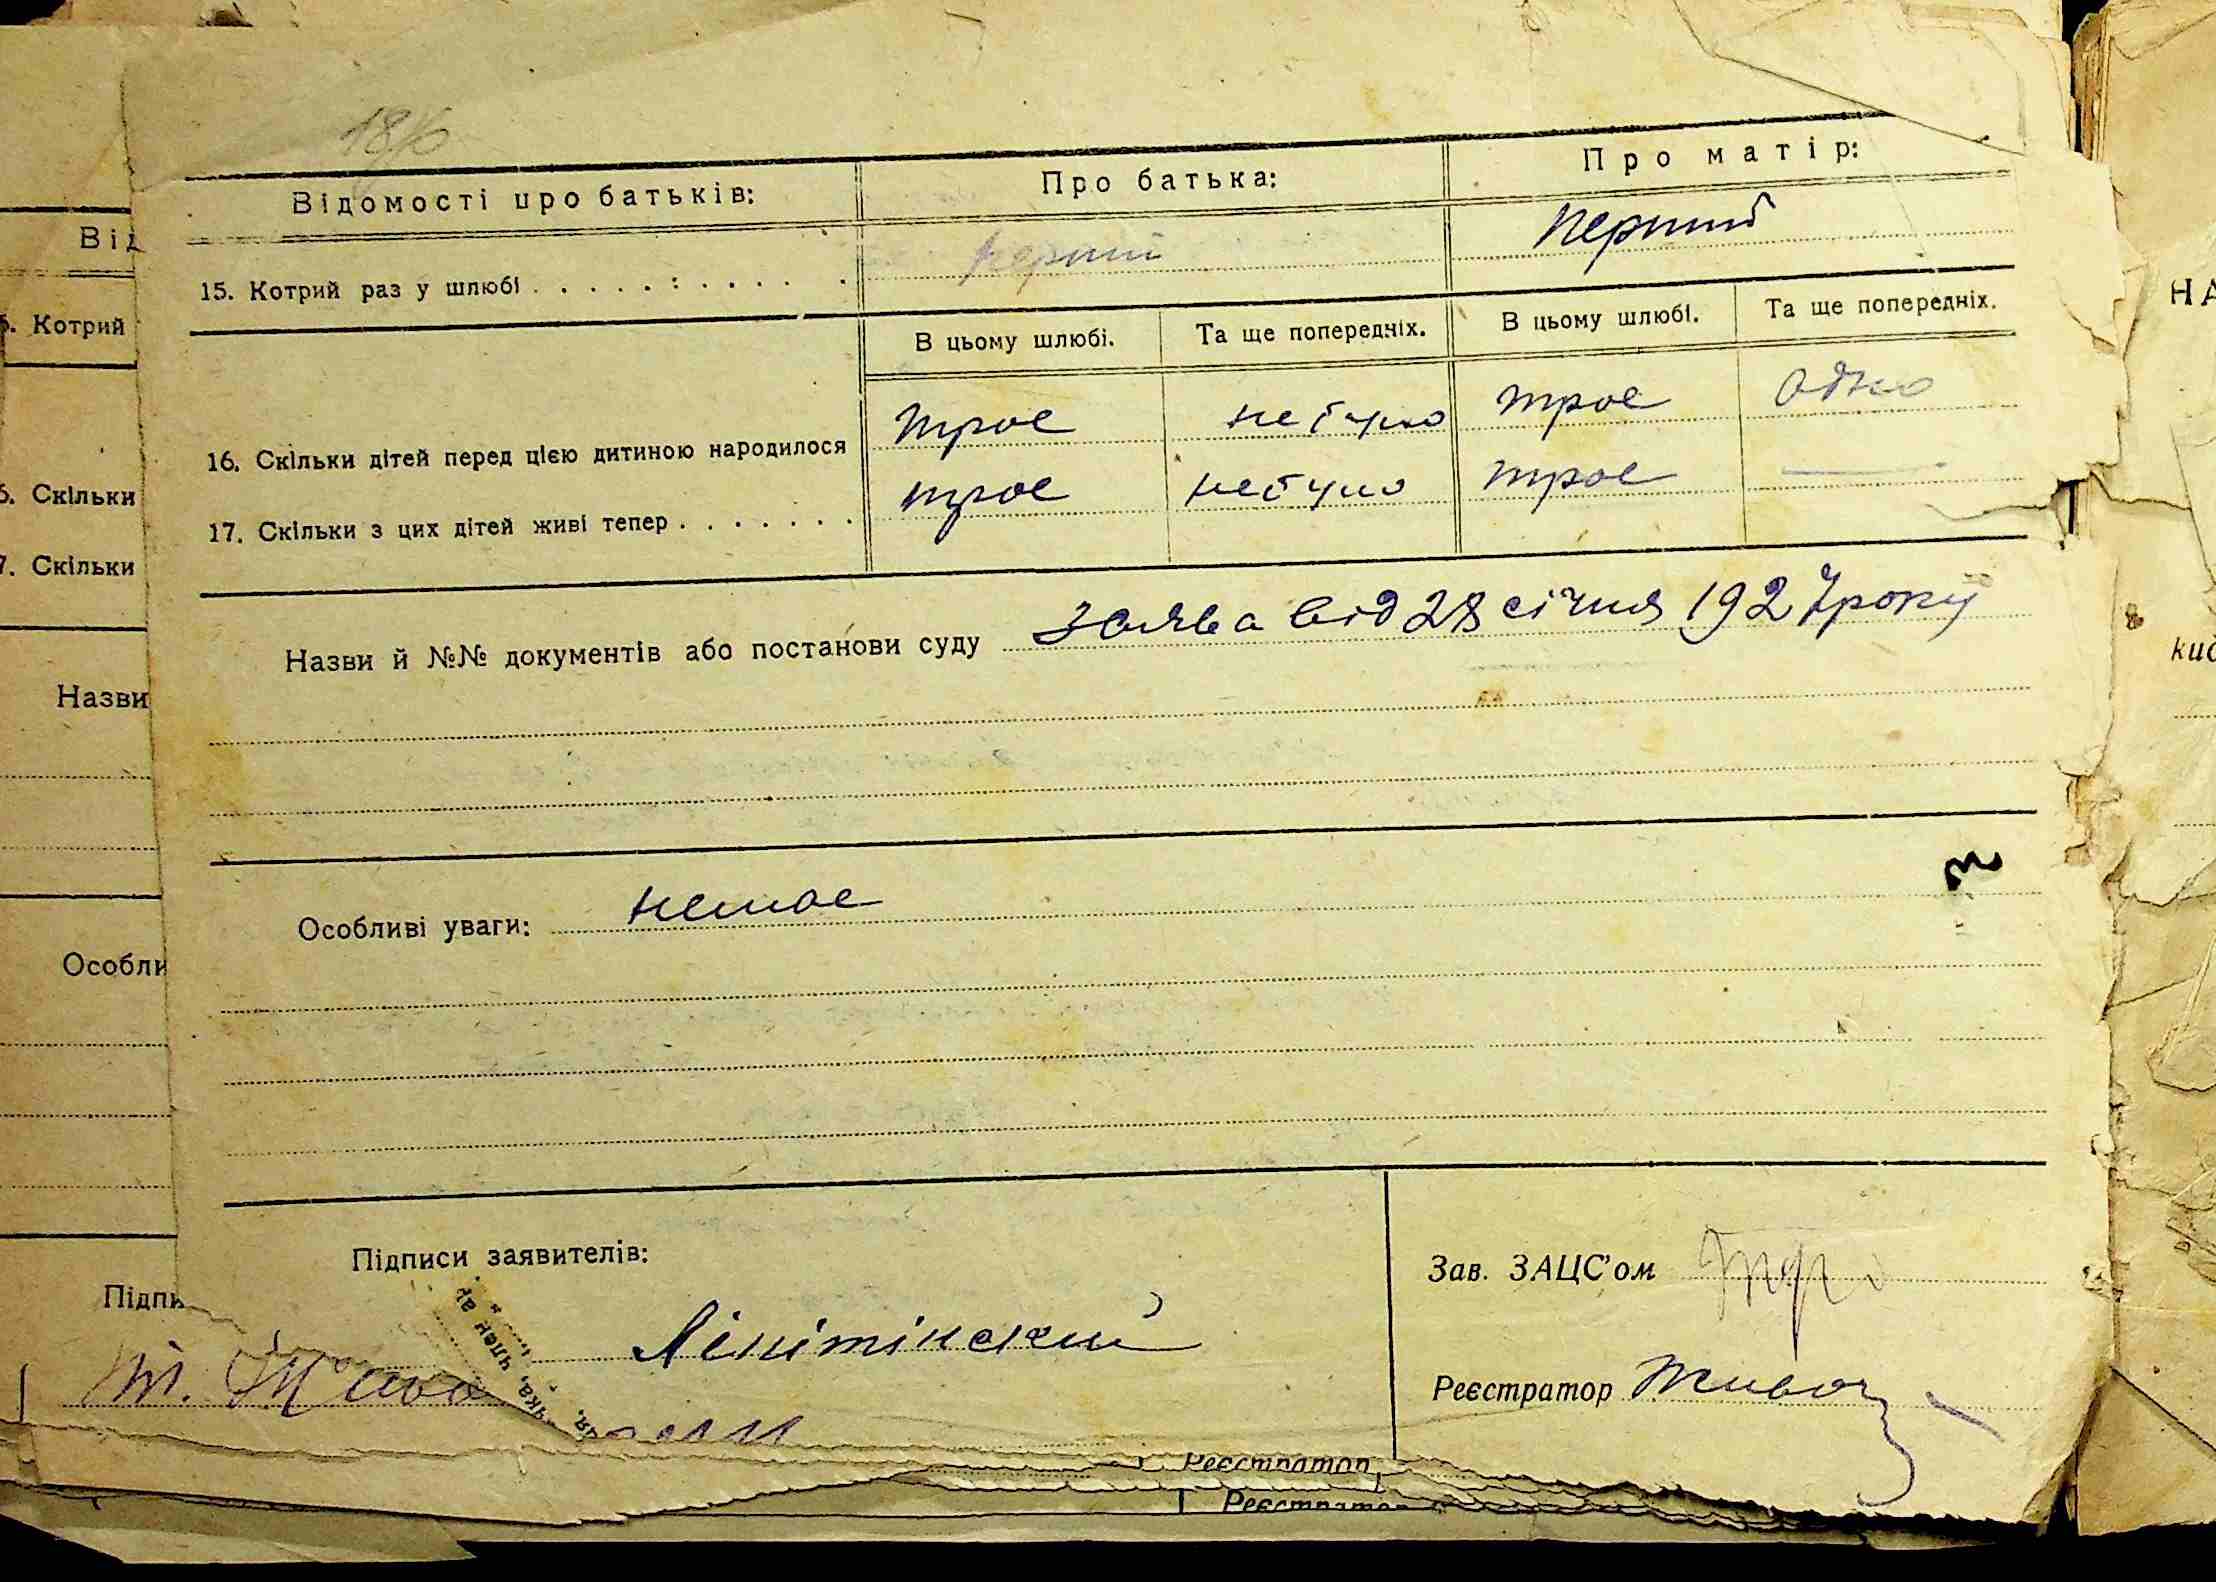 Відомості про батьків: Про батька: Про матір:
15. Котрий раз у шлюбі перший перший
В цьому шлюбі. Та ще попередніх. В цьому шлюбі. Та ще попередніх.
16. Скільки дітей перед цією дитиною народилося трое небуло трое одно
17. Скільки з цих дітей живі тепер трое небуло трое —
Назви й №№ документів або постанови суду заява від 28 січня 1927 року
Особливі уваги: немае
Підписи заявителів:
Зав. ЗАЦС'ом
Лікітінский
Реєстратор
Від
Котрий
Скільки
Скільки
Назви
Особли
Підпи
Реєстратор
Реєстратор
НА